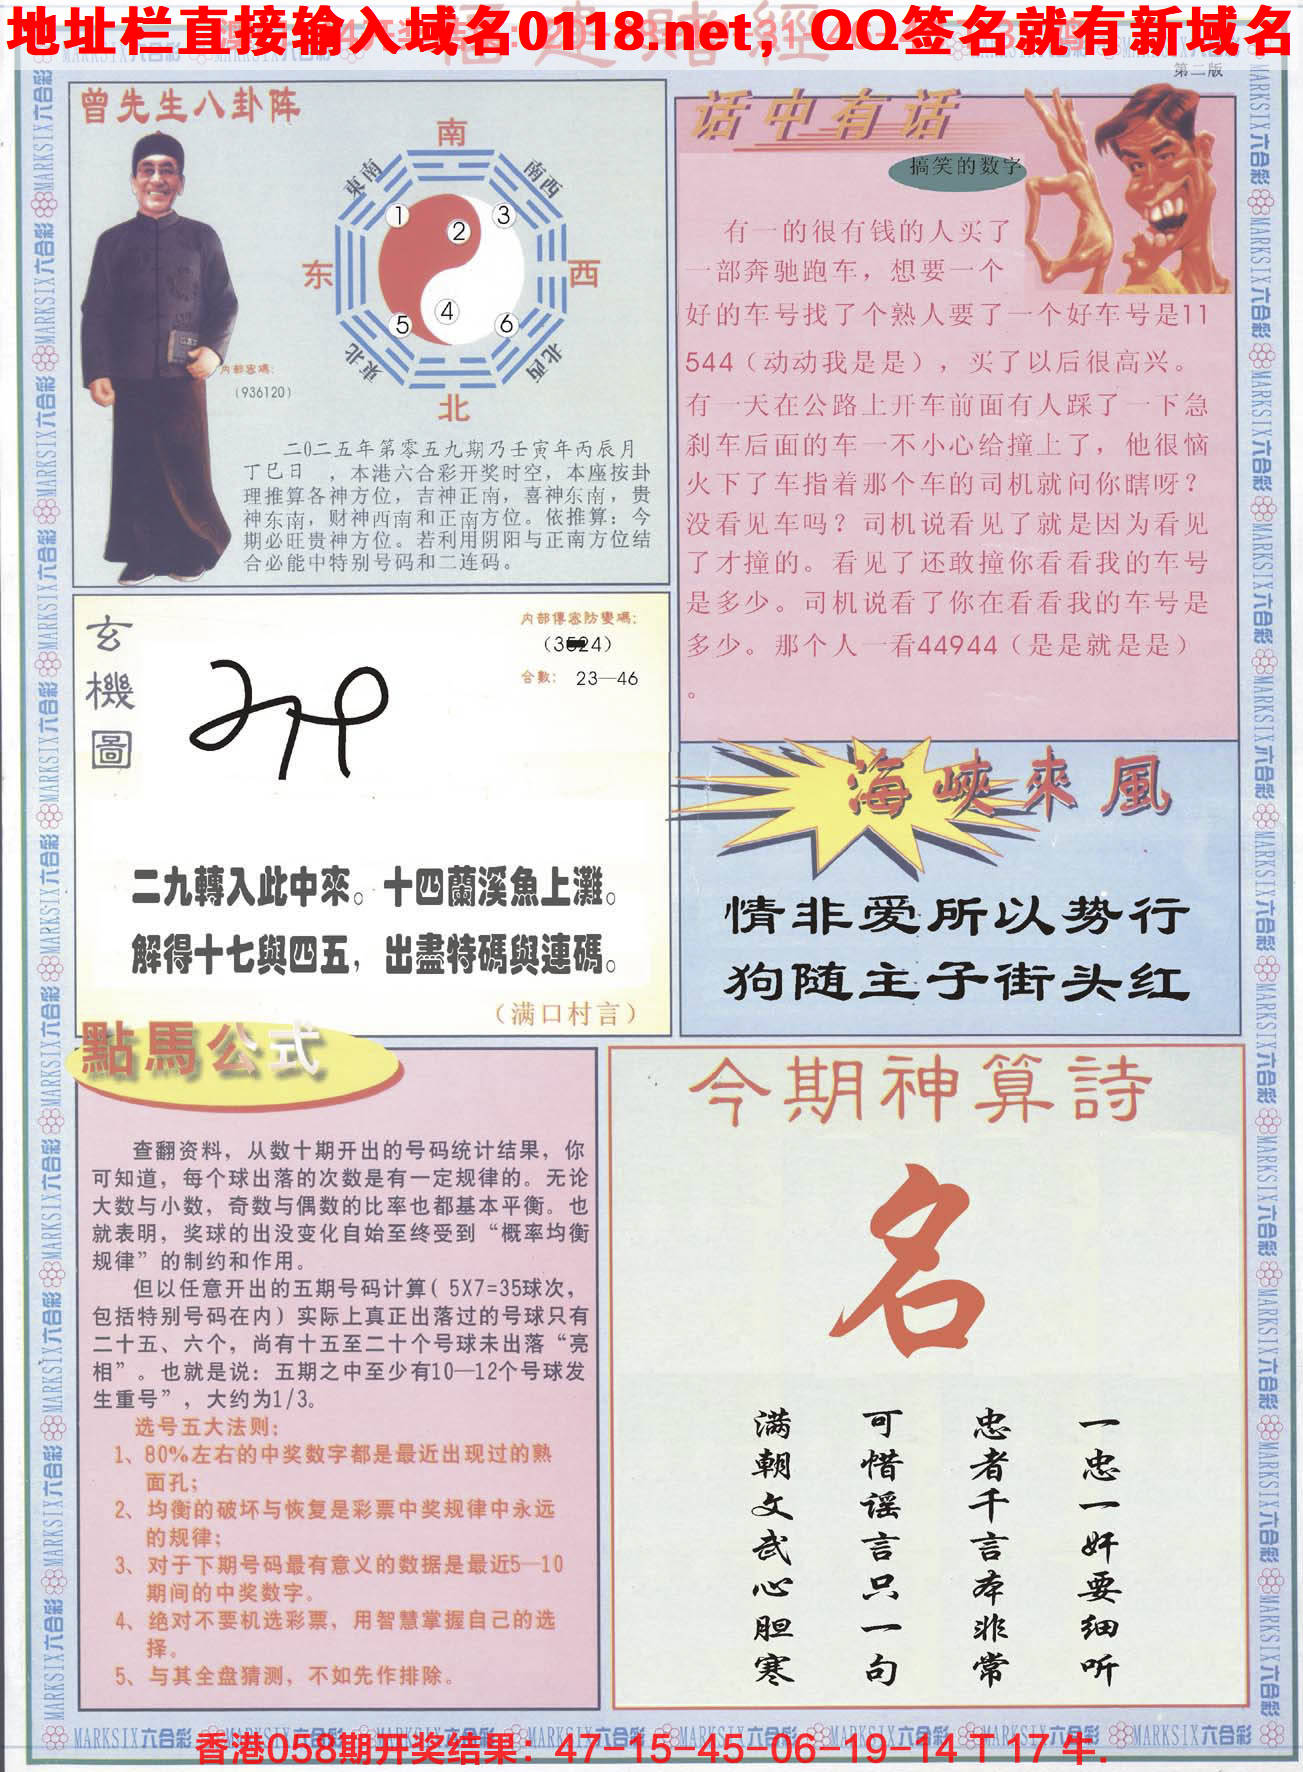 地址栏直接输入域名0118.net，QQ签名就有新域名
福建赌經
第二版
曾先生八卦阵
南
東南
南西
1
2
3
东
西
4
5
6
東北
北西
北
内部密碼：
（936120）
二0二五年第零五九期乃壬寅年丙辰月
丁巳日　，本港六合彩开奖时空，本座按卦
理推算各神方位，吉神正南，喜神东南，贵
神东南，财神西南和正南方位。依推算：今
期必旺贵神方位。若利用阴阳与正南方位结
合必能中特别号码和二连码。
话中有话
搞笑的数字
有一的很有钱的人买了
一部奔驰跑车，想要一个
好的车号找了个熟人要了一个好车号是11
544（动动我是是），买了以后很高兴。
有一天在公路上开车前面有人踩了一下急
刹车后面的车一不小心给撞上了，他很恼
火下了车指着那个车的司机就问你瞎呀？
没看见车吗？司机说看见了就是因为看见
了才撞的。看见了还敢撞你看看我的车号
是多少。司机说看了你在看看我的车号是
多少。那个人一看44944（是是就是是）
。
玄機圖
内部傳密防變碼：
合數： 23—46
二九轉入此中來。十四蘭溪魚上灘。
解得十七與四五，出盡特碼與連碼。
（满口村言）
海峽來風
情非爱所以势行
狗随主子街头红
點馬公式
查翻资料，从数十期开出的号码统计结果，你
可知道，每个球出落的次数是有一定规律的。无论
大数与小数，奇数与偶数的比率也都基本平衡。也
就表明，奖球的出没变化自始至终受到“概率均衡
规律”的制约和作用。
但以任意开出的五期号码计算（5X7=35球次，
包括特别号码在内）实际上真正出落过的号球只有
二十五、六个，尚有十五至二十个号球未出落“亮
相”。也就是说：五期之中至少有10—12个号球发
生重号”，大约为1/3。
选号五大法则：
1、80%左右的中奖数字都是最近出现过的熟
面孔；
2、均衡的破坏与恢复是彩票中奖规律中永远
的规律；
3、对于下期号码最有意义的数据是最近5—10
期间的中奖数字。
4、绝对不要机选彩票，用智慧掌握自己的选
择。
5、与其全盘猜测，不如先作排除。
今期神算詩
名
一忠一奸要细听
忠者千言本非常
可惜谣言只一句
满朝文武心胆寒
MARKSIX六合彩
香港058期开奖结果：47-15-45-06-19-14 T 17 牛.